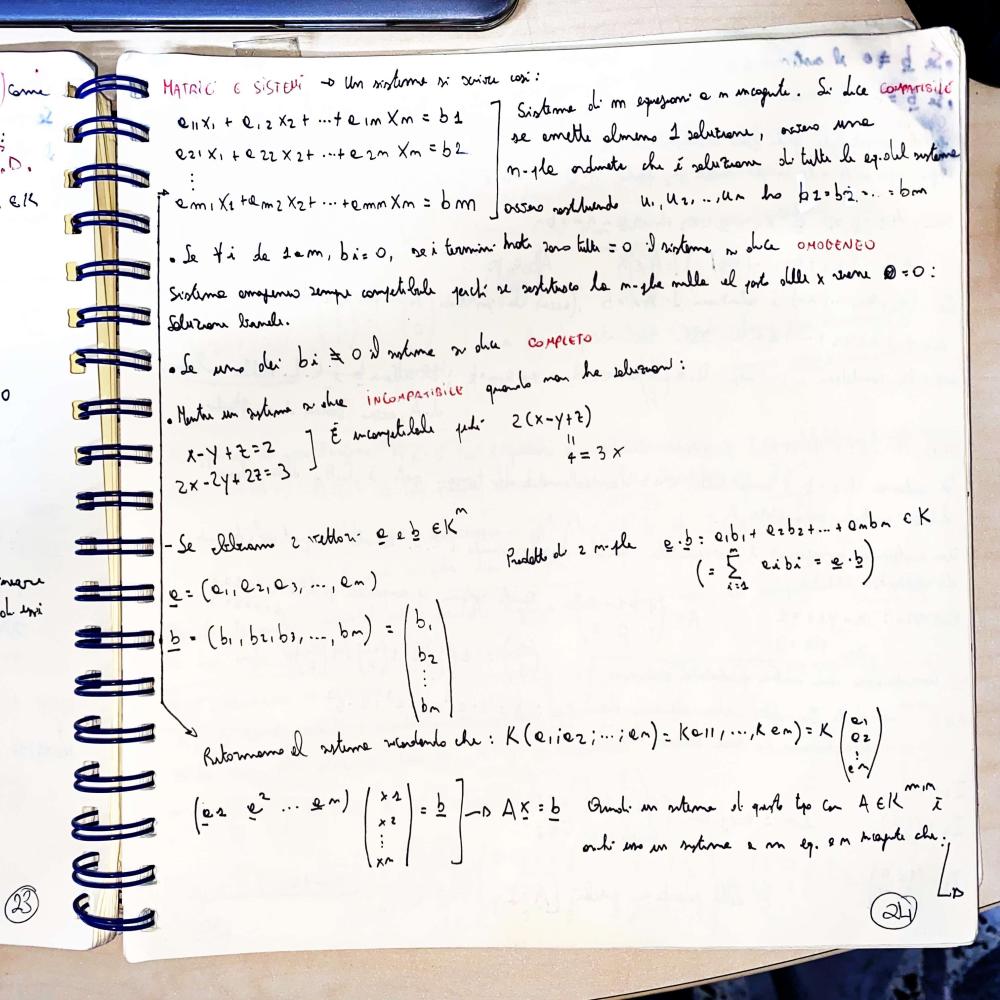 come
D.
∈K
23
MATRICI E SISTEMI → Un sistema si scrive così:
a11x1 + a12x2 + ... + a1mXm = b1
a21x1 + a22x2 + ... + a2mXm = b2
⋮
am1x1 + am2x2 + ... + amnXm = bm
Sistema di m equazioni e n incognite. Si dice COMPATIBILE
se ammette almeno 1 soluzione, ovvero una
n-pla ordinata che è soluzione di tutte le eq. del sistema
ovvero sostituendo u1, u2, ..., un ho b1=b2=...=bm
• Se ∀i da 1 a m, bi=0, se i termini noti sono tutti =0 il sistema si dice OMOGENEO
Sistema omogeneo sempre compatibile perché se sostituisco la n-pla nulla al posto delle x viene 0=0:
Soluzione banale.
• Se uno dei bi ≠ 0 il sistema si dice COMPLETO
• Mentre un sistema si dice INCOMPATIBILE quando non ha soluzioni:
x-y+z=2
2x-2y+2z=3
È incompatibile perché 2(x-y+z)
"
4=3 x
- Se abbiamo 2 vettori a e b ∈K^m
Prodotto di 2 n-ple a·b = a1b1 + a2b2 + ... + ambm ∈ K
(= Σ i=1 m aibi = a·b)
a = (a1, a2, a3, ..., am)
b = (b1, b2, b3, ..., bm) = (b1
b2
⋮
bm)
Ritorniamo al sistema ricordando che: K(a1; a2; ...; am) = Ka11, ..., Kam) = K (a1
a2
⋮
am)
(a1 a2 ... an) (x1
x2
⋮
xn) = b] → Ax = b
Quindi un sistema di questo tipo con A∈K^m,n è
anch'esso un sistema a m eq. e n incognite che:
24